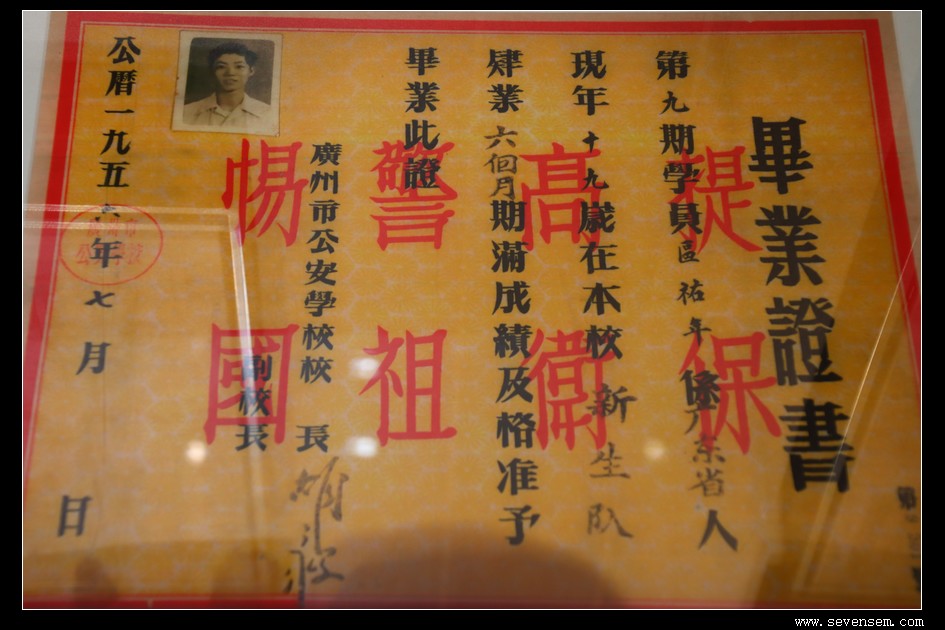 畢業證書
第九期學員區祐年係广东省人
現年十九歲在本校新生队
肄業六個月期滿成績及格准予
畢業此證
廣州市公安學校校長
副校長
公曆一九五六年七月日
提高警惕
保衛祖國
www.sevensem.com